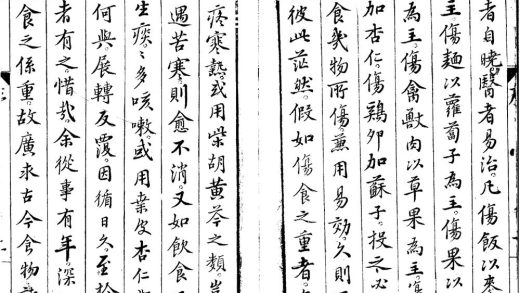 者自曉。醫者易治。凡傷飯以麥
主。傷麵以蘿蔔子為主。傷果以
為主。傷禽獸肉以草果為主。
加杏仁。傷鷄卵加蘇子。投之必
食幾物所傷。兼用易効。久則
彼此茫然。假如傷食之重者。
疼寒熱。或用柴胡黃芩之類。豈
遇苦寒則愈不消。又如飲食
生痰。々多咳嗽。或用桑皮杏仁
何與。展轉反覆。因循日久。至於
者有之。惜哉。余從事有年。深
食之係重。故廣求古今食物